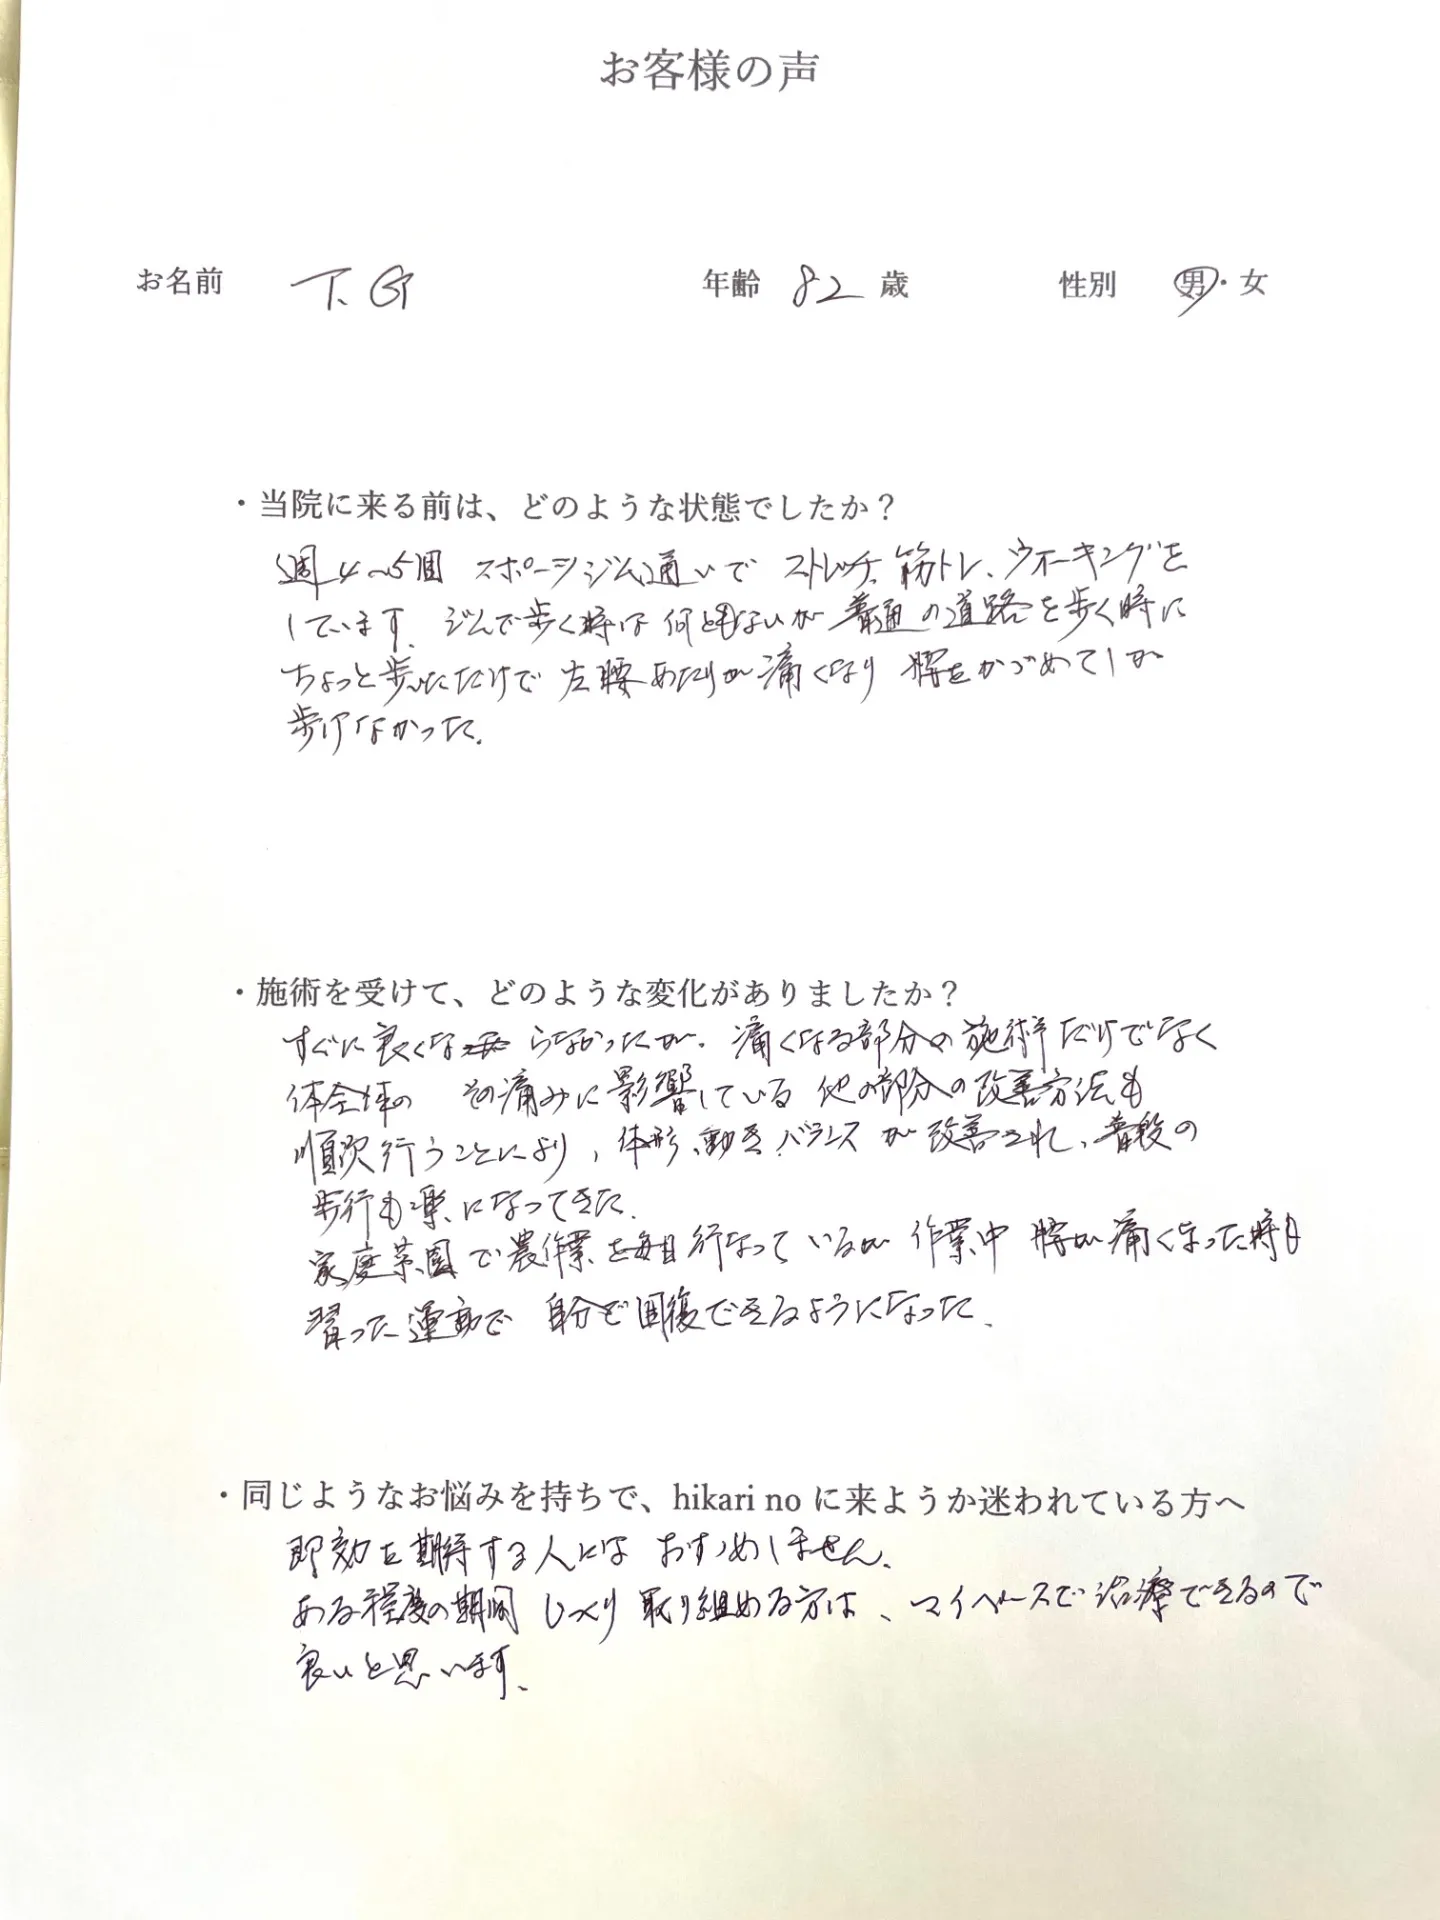 お客様の声
お名前 T.G 年齢 82 歳 性別 男・女
・当院に来る前は、どのような状態でしたか？
週4~5回 スポーツジム通いで ストレッチ、筋トレ、ウオーキングを
しています。ジムで歩く時は何ともないが 普通の道路を歩く時に
ちょっと歩いただけで 左腰あたりが痛くなり 腰をかがめてしか
歩けなかった。
・施術を受けて、どのような変化がありましたか？
すぐに良くな らなかったが、痛くなる部分の施術だけでなく
体全体の その痛みに影響している 他の部分の改善方法も
順次行うことにより、体形、動き、バランスが改善され、普段の
歩行も楽になってきた。
家庭菜園で農作業を毎日行なっているが 作業中 腰が痛くなった時も
習った運動で 自分で回復できるようになった。
・同じようなお悩みを持ちで、hikari no に来ようか迷われている方へ
即効を期待する人には おすすめしません。
ある程度の期間 じっくり取り組める方は、マイペースで治療できるので
良いと思います。